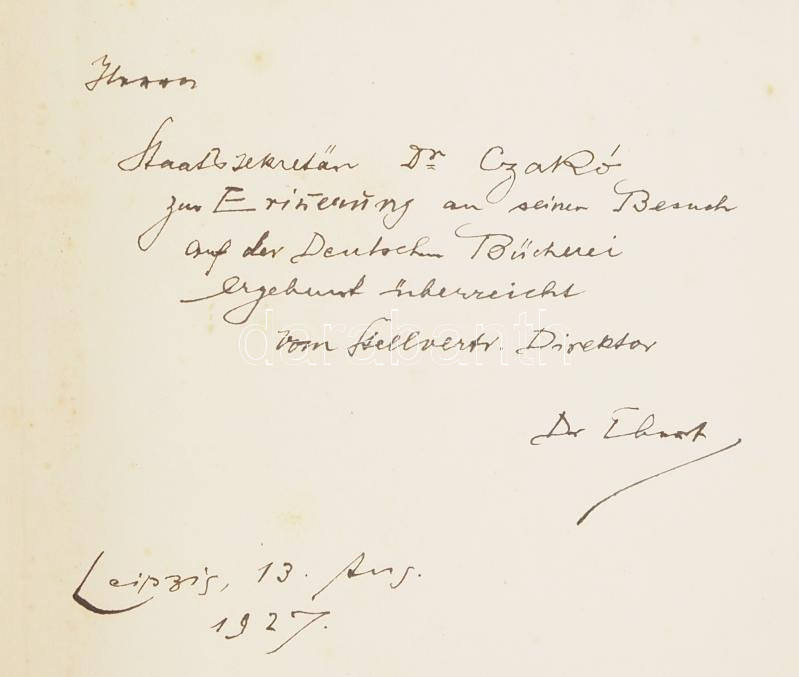 Herrn
Staatssekretär Dr Czakó
zur Erin̄erung an seinen Besuch
auf der Deutschen Bücherei
ergebenst überreicht
vom stellvertr. Direktor
Dr Ebert
Leipzig, 13. Aug.
1927.
darabanth